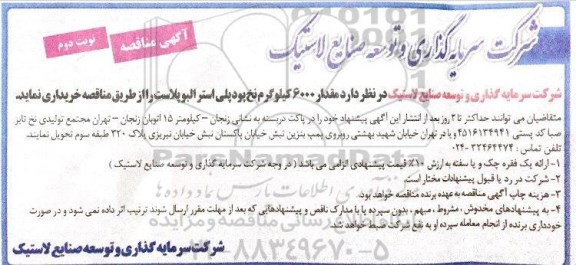 شرکت سرمایه گذاری و توسعه صنایع لاستیک
آگهی مناقصه
نوبت دوم
شرکت سرمایه گذاری و توسعه صنایع لاستیک در نظر دارد مقدار ۶۰۰۰ کیلوگرم نخ پود پلی استر الیوپلاست را از طریق مناقصه خریداری نماید.
متقاضیان می توانند حداکثر تا ۳ روز بعد از انتشار این آگهی پیشنهاد خود را در پاکت دربسته به نشانی زنجان – کیلومتر ۱۵ اتوبان زنجان – تهران مجتمع تولیدی نخ تایر
صبا کد پستی ۴۵۱۶۱۳۴۹۴۱ و یا در تهران خیابان شهید بهشتی روبروی پمپ بنزین نبش خیابان پاکستان نبش خیابان تبریزی پلاک ۳۲۰ طبقه سوم تحویل نمایند.
تلفن تماس : ۳۲۴۶۴۴۷۴-۰۲۴
۱- ارائه یک فقره چک و یا سفته به ارزش ۱۰٪ قیمت پیشنهادی الزامی می باشد ( در وجه شرکت سرمایه گذاری و توسعه صنایع لاستیک )
۲- شرکت در رد یا قبول پیشنهادات مختار است.
۳- هزینه چاپ آگهی مناقصه به عهده برنده مناقصه خواهد بود.
۴- به پیشنهادهای مخدوش ، مشروط ، مبهم ، بدون سپرده یا با مدارک ناقص و پیشنهادهایی که بعد از مهلت مقرر ارسال شوند ترتیب اثر داده نمی شود و در صورت
خودداری برنده از انجام معامله سپرده او به نفع شرکت ضبط خواهد شد.
شرکت سرمایه گذاری و توسعه صنایع لاستیک
۰۲۱-۸۸۳۴۹۶۷۰-۵